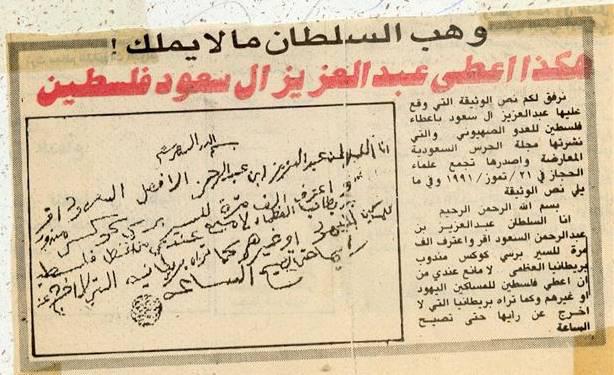 وهب السلطان مالايملك !
هكذا اعطى عبدالعزيز ال سعود فلسطين
نرفق لكم نص الوثيقة التي وقع
عليها عبدالعزيز ال سعود باعطاء
فلسطين للعدو الصهيوني والتي
نشرتها مجلة الحرس السعودية
المعارضة واصدرها تجمع علماء
الحجاز في ٢١/تموز/١٩٩١ وفي ما
يلي نص الوثيقة
بسم الله الرحمن الرحيم
انا السلطان عبدالعزيز بن
عبدالرحمن السعود اقر واعترف الف
مرة للسير برسي كوكس مندوب
بريطانيا العظمى لا مانع عندي من
ان اعطي فلسطين للمساكين اليهود
او غيرهم وكما تراه بريطانيا التي لا
اخرج عن رايها حتى تصيح
الساعة
بسم الله الرحمن الرحيم
انا السلطان عبدالعزيز ابن عبدالرحمن الفيصل السعود اقر
واعترف الف مرة للسير برسي كوكس مندوب
بريطانيا العظمى لا مانع عندي